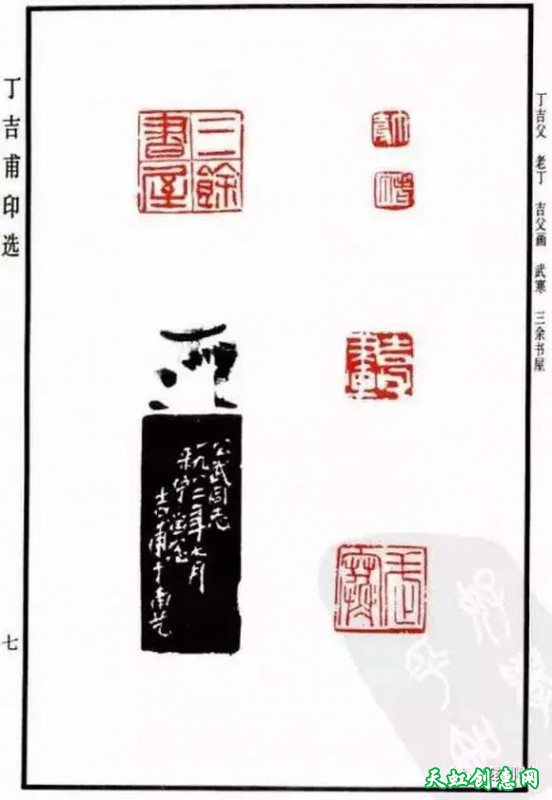 丁吉父 老丁 吉父画 武寒 三余书屋
吉父
武寒
三餘
書屋
公武同志
一九八二年七月
吉甫于南艺
丁吉甫印选
七
天虹创意网